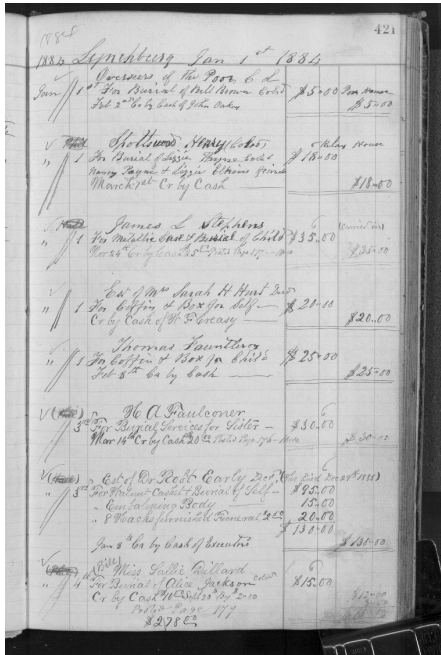 421
1884
1884 Lynchburg Jan 1st 1884
Overseers of The Poor C. L
Jan 1st For Burial of Bill Brown Cold $5.00 Poor House
Feb 2nd Cr by Cash of John Oakes $5.00
Spottswood Henry Cold
" 1 For Burial of Lizzie Payne Cold $18.00
Nancy Payne & Lizzie
March 1st Cr by Cash $18.00
James L Stephens
" 1 For Metallic Case & Burial of Child $35.00 (Carried on)
$35.00
Est of Mrs Sarah H Hurt Decd
" 1 For Coffin & Box for Self $20.00
Cr by Cash of W F Creasy $20.00
Thomas Fauntleroy
" 1 For Coffin & Box for Child $25.00
Feb 8th Cr by Cash $25.00
A Faulconer
3rd For Burial Services for Sister $30.00
Mar 14th Cr by Cash 20 $30.00
Est of Dr Robt Early Decd
" 3rd For Walnut Casket & Burial of Self $95.00
" Embalming Body 15.00
" 8 Hacks furnished Funeral 20.00
$130.00
Jan 8th Cr by Cash of Executor $130.00
Miss Sallie Bullard
" 4th For Burial of Alice Jackson Cold $15.00
Cr by Cash
Posted Page 177
$278.00